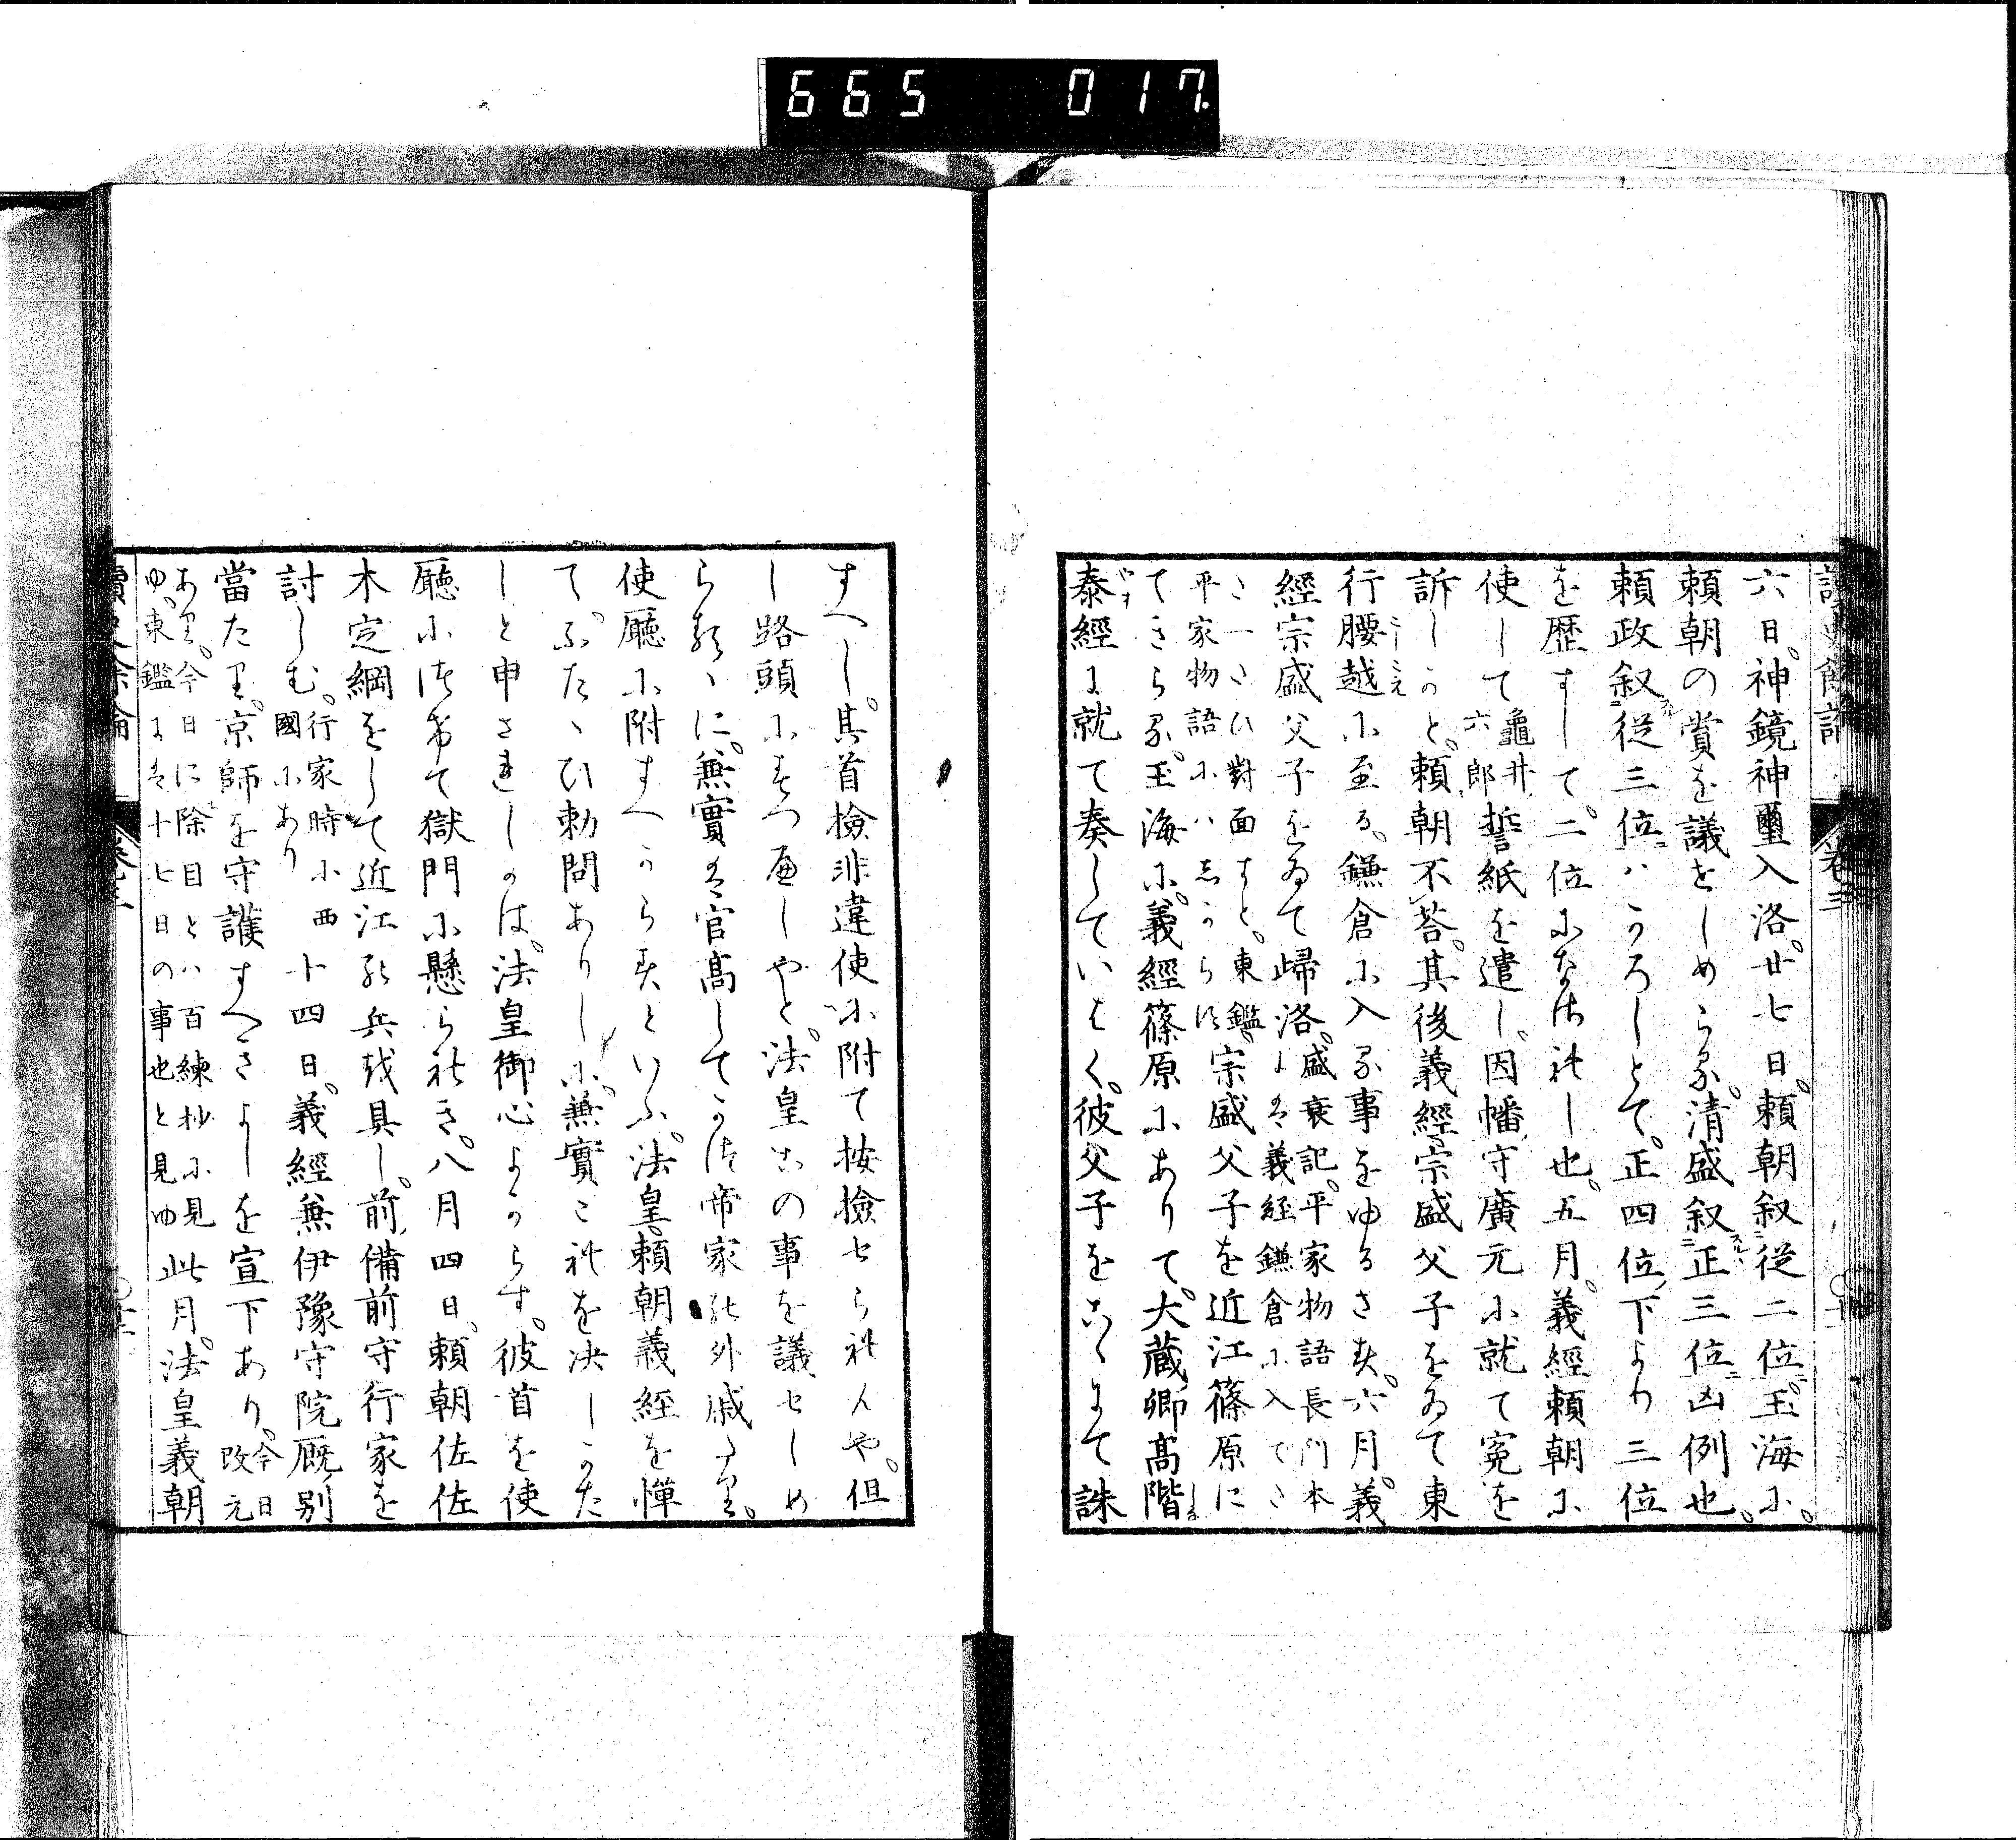 665 017.
讀史餘論 卷三
六日。神鏡神璽入洛。廿七日。頼朝叙從二位。玉海に。
頼朝の賞を議せしめらる。清盛叙正三位凶例也。
頼政叙從三位ハうろしとて。正四位下より三位
を歴すして。二位になされし也。五月。義經頼朝に
使して龜井六郎誓紙を遣し。因幡守廣元に就て寃を
訴しかと。頼朝不荅。其後義經宗盛父子をゐて東
行腰越に至る。鎌倉に入る事をゆるさす。六月。義
經宗盛父子をゐて歸洛。盛衰記。平家物語長門本
さ一さひ對面すと。東鑑よは義経鎌倉に入てさ
平家物語にハしからす。宗盛父子を近江篠原に
てきらる。玉海に。義經篠原にありて。大蔵卿髙階
泰經に就て奏していはく。彼父子をこゝにて誅
すへし。其首檢非違使に附て按檢せられんや。但
し路頭にすつへしやと。法皇此の事を議せしめ
らるゝに。兼實は官髙してかつ帝家の外戚たり。
使廳に附すへからすといふ。法皇頼朝義経を憚
て。ふたゝひ勅問ありしに。兼實これを決しかた
しと申されしかは。法皇御心よからす。彼首を使
廳につけて獄門に懸られき。八月四日。頼朝佐佐
木定綱をして近江の兵を具し。前備前守行家を
討しむ。行家時に西國にあり十四日。義經兼伊豫守院厩別
當たり。京師を守護すへきよしを宣下あり。今日改元
あり。今日に除目とハ百練抄に見
ゆ。東鑑よは十七日の事也と見ゆ此月。法皇義朝
讀史餘論 卷三